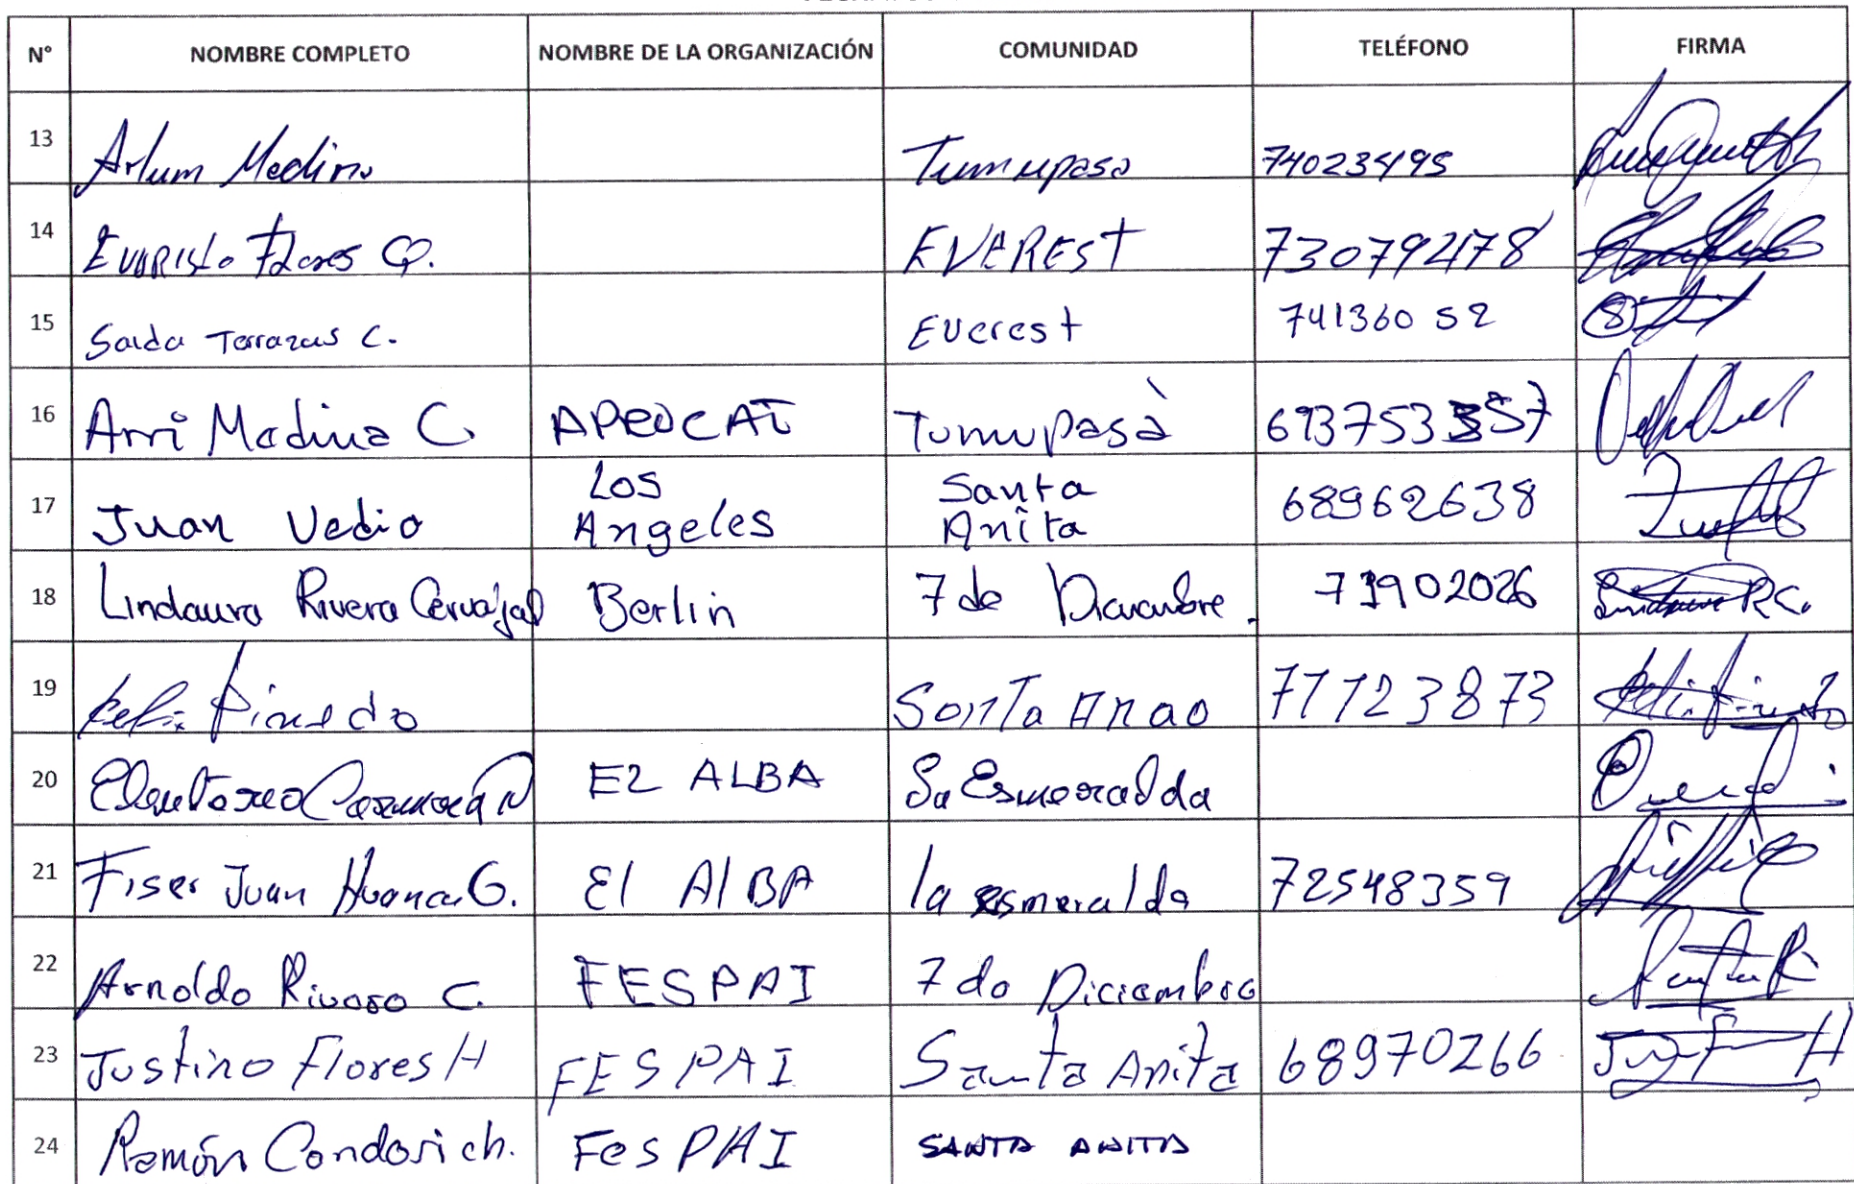 N° NOMBRE COMPLETO NOMBRE DE LA ORGANIZACIÓN COMUNIDAD TELÉFONO FIRMA
13 Medina Tumupasa 74023495
14 Evaristo Flores Q. EVEREST 73079478
15 Saida Terrazas C. Everest 74136052
16 Arri Medina C. Tumupasà
17 Juan Vedio Los Angeles Santa Anita 68962638
18 Lindaura Rivera Carvajal Berlin 7 de Diciembre. 71902026
19 Felix Pinedo Santa 77723873
20 El ALBA La Esmeralda
21 Fiser Juan Huanca G. El AlBA la esmeralda 72548359
22 Arnoldo Rivero C. FESPAI 7 de Diciembre
23 Justino Flores H FESPAI Santa Anita 68970266
24 Ramón Condori ch. FesPAI SANTA ANITA